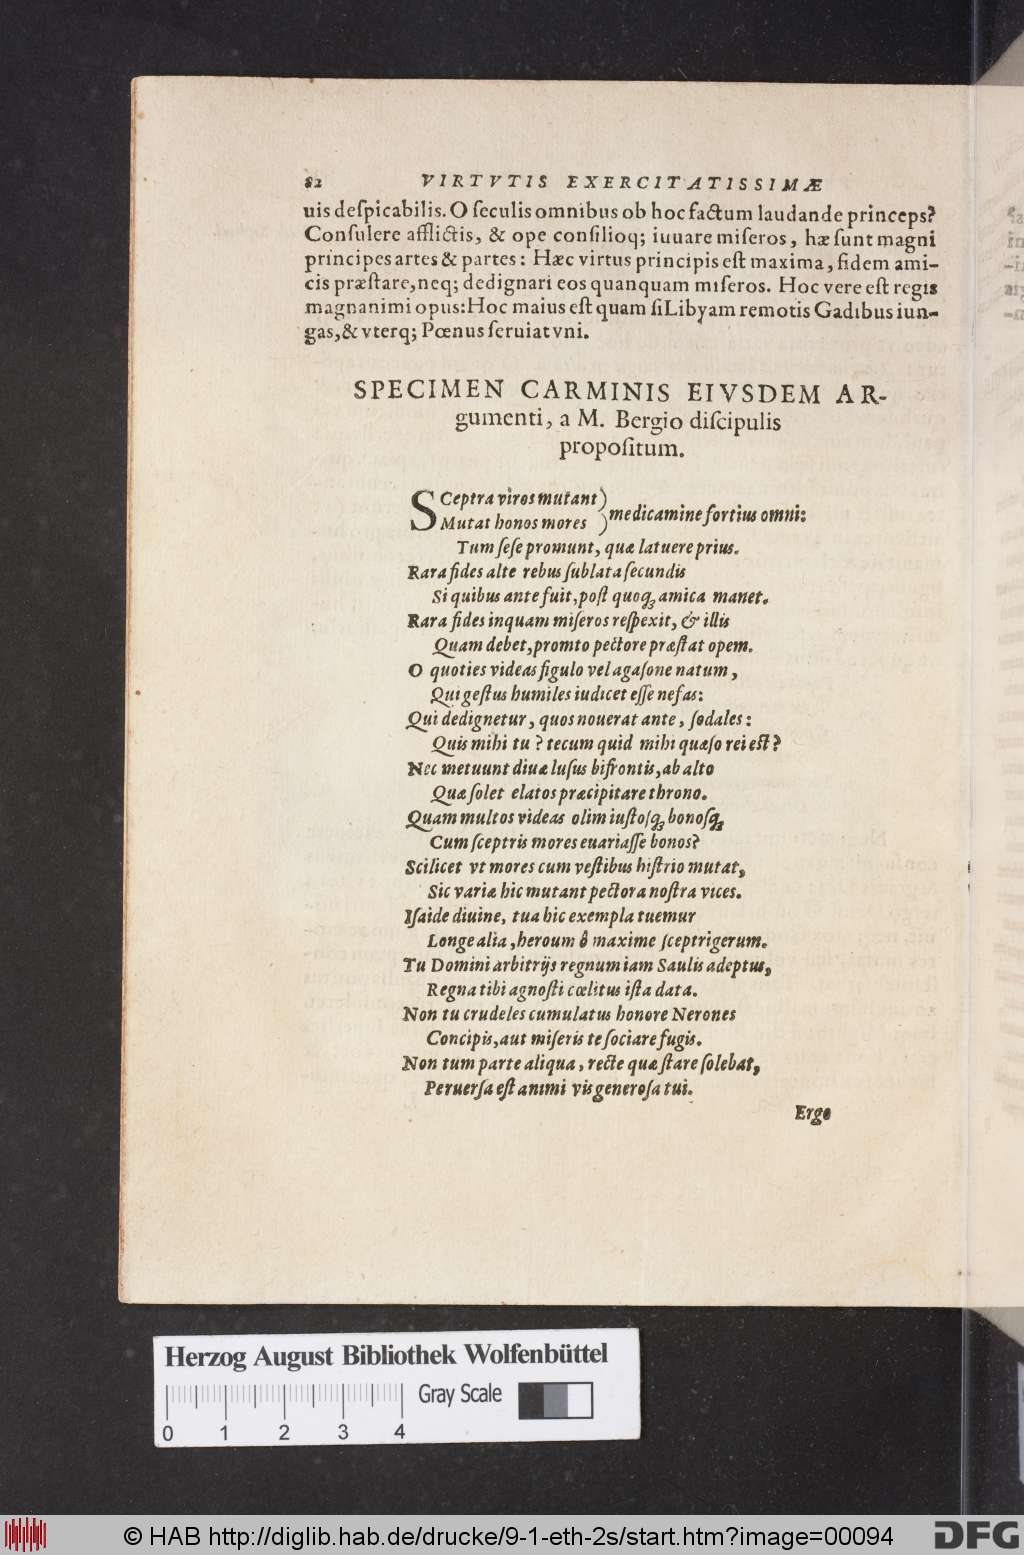 82 VIRTVTIS EXERCITATISSIMÆ
uis deſpicabilis. O ſeculis omnibus ob hoc factum laudande princeps?
Conſulere afflictis, & ope conſilioq; iuuare miſeros, hæ ſunt magni
principes artes & partes: Hæc virtus principis eſt maxima, fidem ami-
cis præſtare, neq; dedignari eos quanquam miſeros. Hoc vere eſt regis
magnanimi opus: Hoc maius eſt quam ſi Libyam remotis Gadibus iun-
gas, & vterq; Pœnus ſeruiat vni.
SPECIMEN CARMINIS EIVSDEM AR-
gumenti, a M. Bergio diſcipulis
propoſitum.
SCeptra viros mutant)
Mutat honos mores ) medicamine fortius omni:
Tum ſeſe promunt, quæ latuere prius.
Rara fides alte rebus ſublata ſecundis
Si quibus ante fuit, poſt quoq; amica manet.
Rara fides inquam miſeros reſpexit, & illis
Quam debet, promto pectore præſtat opem.
O quoties videas figulo vel agaſone natum,
Qui geſtus humiles iudicet eſſe nefas:
Qui dedignetur, quos nouerat ante, ſodales:
Quis mihi tu? tecum quid mihi quæſo rei est?
Nec metuunt diuæ luſus bifrontis, ab alto
Quæ ſolet elatos præcipitare throno.
Quam multos videas olim iuſtoſq; bonoſq;
Cum ſceptris mores euariaſſe bonos?
Scilicet vt mores cum veſtibus hiſtrio mutat,
Sic variæ hic mutant pectora noſtra vices.
Iſaide diuine, tua hic exempla tuemur
Longe alia, heroum ô maxime ſceptrigerum.
Tu Domini arbitrijs regnum iam Saulis adeptus,
Regna tibi agnoſti cœlitus iſta data.
Non tu crudeles cumulatus honore Nerones
Concipis, aut miſeris te ſociare fugis.
Non tum parte aliqua, recte quæ ſtare ſolebat,
Peruerſa eſt animi vis generoſa tui.
Ergo
Herzog August Bibliothek Wolfenbüttel
Gray Scale
0 1 2 3 4
© HAB http://diglib.hab.de/drucke/9-1-eth-2s/start.htm?image=00094
DFG